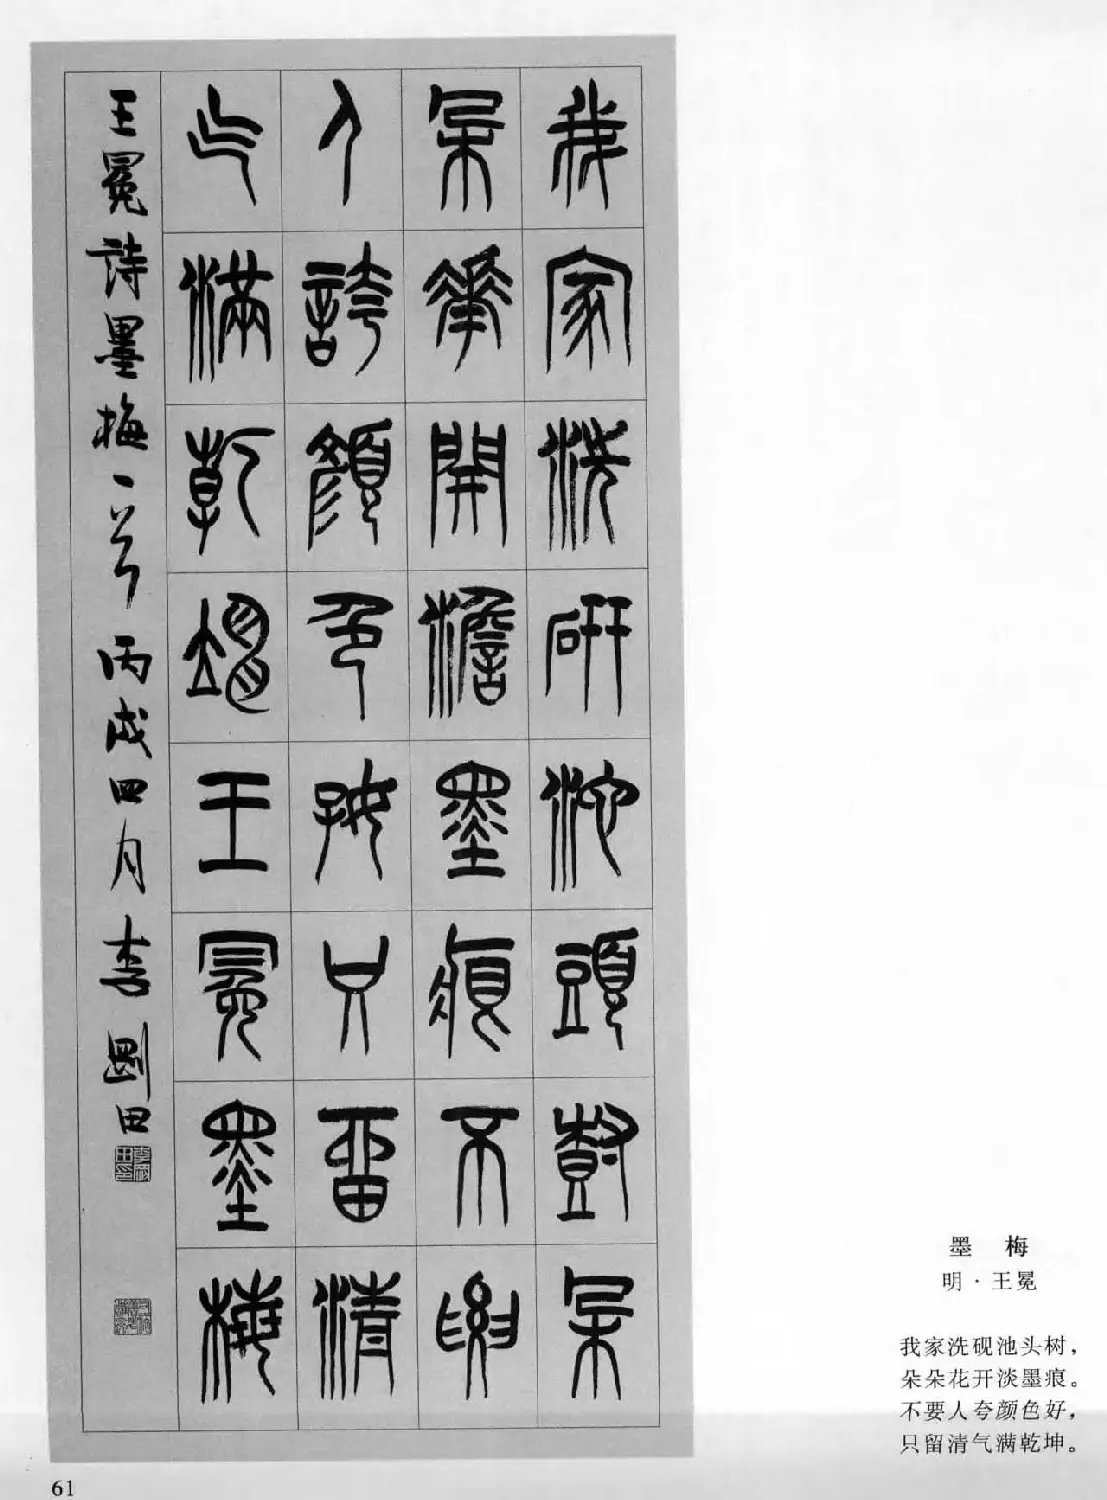 我家洗研池頭樹朵
朵華開澹墨痕不要
人誇顏色好只留清
气滿乾坤王冕墨梅
王冕詩墨梅一首丙戌四月李剛田
墨 梅
明·王冕
我家洗砚池头树，
朵朵花开淡墨痕。
不要人夸颜色好，
只留清气满乾坤。
61